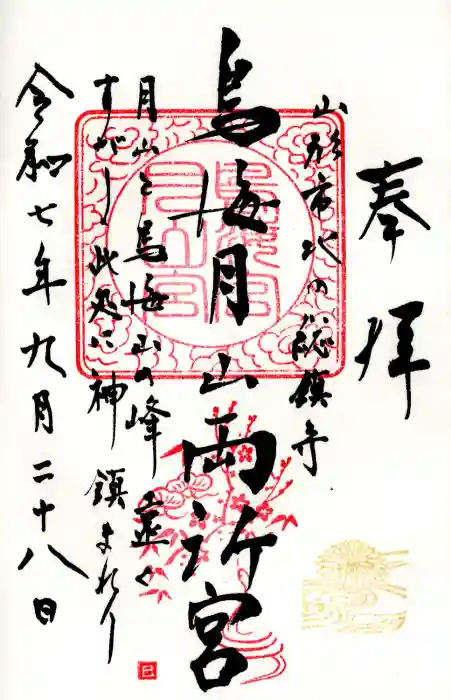 奉拝
山形市北の総鎮守
鳥海月山両所宮
月山と鳥海山の峰遠く
すがしく此処に神鎮まれり
令和七年九月二十八日
巳